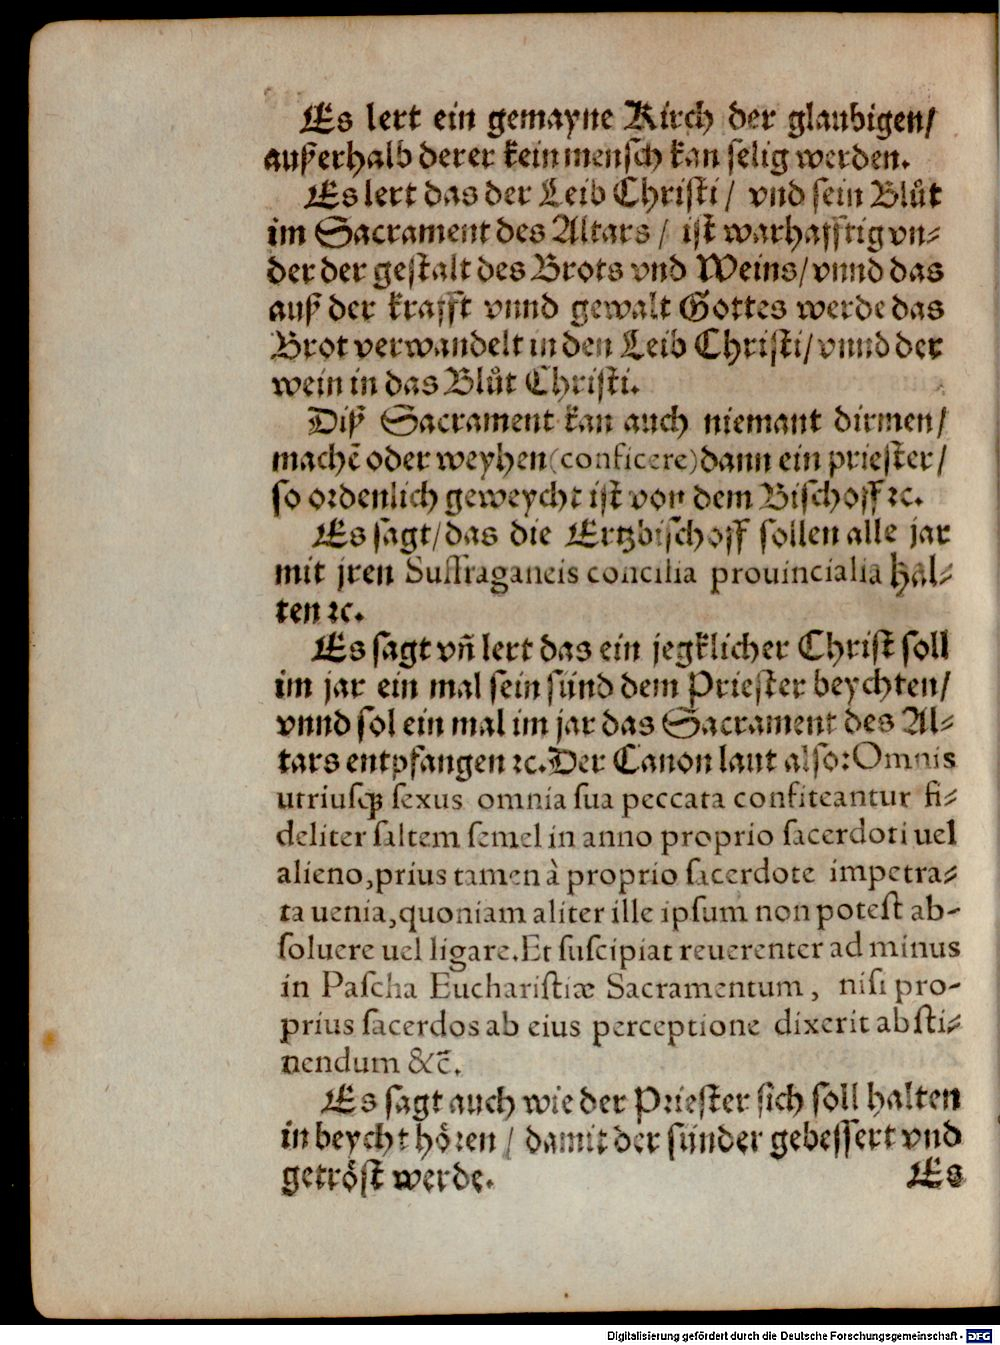 Es lert ein gemayne Kirch der glaubigen/
ausserhalb derer kein mensch kan selig werden.
Es lert das der Leib Christi/ vnd sein Blůt
im Sacrament des Altars/ ist warhafftig vn⸗
der der gestalt des Brots vnd Weins/ vnnd das
auß der krafft vnnd gewalt Gottes werde das
Brot verwandelt in den Leib Christi/ vnnd der
wein in das Blůt Christi.
Diß Sacrament kan auch niemant dirmen/
machē oder weyhen (conficere) dann ein priester/
so ordenlich geweycht ist von dem Bischoff ꝛc.
Es sagt/ das die Ertzbischoff sollen alle jar
mit jren Suffraganeis concilia prouincialia hal⸗
ten ꝛc.
Es sagt vñ lert das ein jegklicher Christ soll
im jar ein mal sein sünd dem Priester beychten/
vnnd sol ein mal im jar das Sacrament des Al⸗
tars entpfangen ꝛc. Der Canon laut also: Omnis
utriusqꝫ sexus omnia sua peccata confiteantur fi⸗
deliter saltem semel in anno proprio sacerdoti uel
alieno, prius tamen à proprio sacerdote impetra⸗
ta uenia, quoniam aliter ille ipsum non potest ab-
soluere uel ligare. Et suscipiat reuerenter ad minus
in Pascha Eucharistiæ Sacramentum, nisi pro-
prius sacerdos ab eius perceptione dixerit absti⸗
nendum &c̄.
Es sagt auch wie der Priester sich soll halten
in beycht hören/ damit der sünder gebessert vnd
getröst werde.
Es
Digitalisierung gefördert durch die Deutsche Forschungsgemeinschaft - DFG